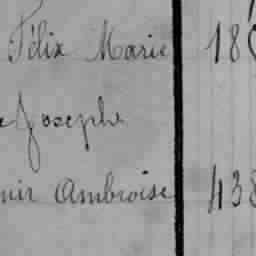 Félix Marie 18
e Joseph
mir Ambroise 438